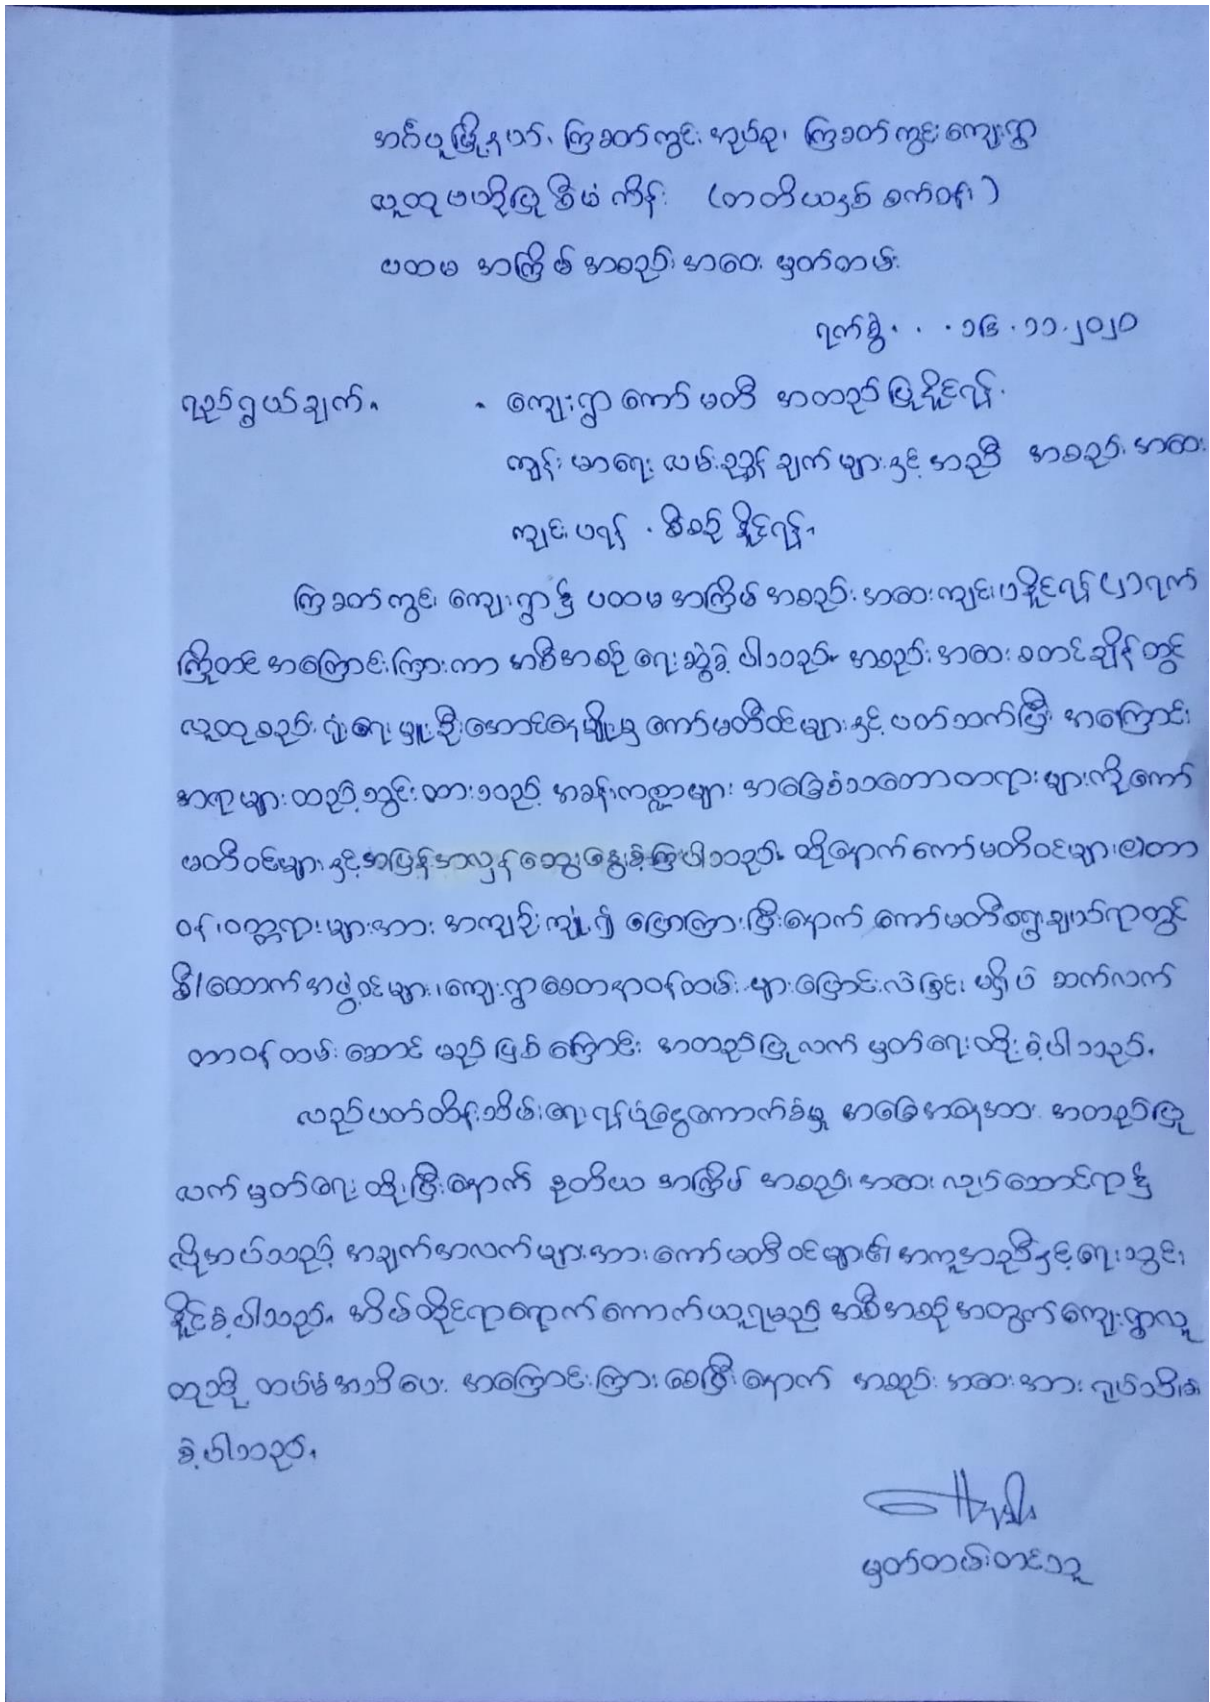 အင်္ဂပူမြို့နယ်၊ ကြခတ်ကွင်း အုပ်စု၊ ကြခတ်ကွင်း ကျေးရွာ
လူထုဗဟိုပြု စီမံကိန်း (တတိယနှစ် စက်ဝန်း)
ပထမ အကြိမ် အစည်းအဝေး မှတ်တမ်း
ရက်စွဲ . . . ၁၆.၁၁.၂၀၂၀
ရည်ရွယ်ချက်။ - ကျေးရွာ ကော်မတီ အတည်ပြုနိုင်ရန်.
ကျန်းမာရေး လမ်းညွှန်ချက်များနှင့် အညီ အစည်း အဝေး
ကျင်းပရန် . စီစဉ် နိုင်ရန်.
ကြခတ်ကွင်း ကျေးရွာ၌ ပထမ အကြိမ် အစည်းအဝေးကျင်းပနိုင်ရန် ရက်
ကြိုတင် အကြောင်းကြားကာ အစီအစဉ် ရေးဆွဲခဲ့ပါသည်။ အစည်းအဝေး စတင်ချိန်တွင်
လူထုစည်းရုံးရေးမှူး ဦးအောင်နေမျိုးမှ ကော်မတီဝင်များနှင့် ပတ်သက်ပြီး အကြောင်း
အရာများထည့်သွင်းထားသည့် အခန်းကဏ္ဍများ အခြေခံသဘောတရားများကို ကော်
မတီဝင်များနှင့် အပြန်အလှန် ဆွေးနွေးခဲ့ကြပါသည်။ ထို့နောက် ကော်မတီဝင်များ၏ တာ
ဝန်၊ ဝတ္တရားများအား အကျဉ်းချုံ့၍ ပြောကြားပြီးနောက် ကော်မတီရွေးချယ်ရာတွင်
စီ/ထောက်အဖွဲ့ဝင်များ၊ ကျေးရွာစေတနာ့ဝန်ထမ်းများ ပြောင်းလဲခြင်း မရှိပဲ ဆက်လက်
တာဝန် ထမ်းဆောင် မည် ဖြစ်ကြောင်း အတည်ပြု လက်မှတ်ရေးထိုးခဲ့ပါသည်။
လည်ပတ်ထိန်းသိမ်းရေး ရန်ပုံငွေကောက်ခံမှု အခြေအနေအား အတည်ပြု
လက်မှတ်ရေးထိုးပြီးနောက် ဒုတိယ အကြိမ် အစည်းအဝေး လုပ်ဆောင်ရာ၌
လိုအပ်သည့် အချက်အလက်များအား ကော်မတီဝင်များ၏ အကူအညီနှင့် ရေးသွင်း
နိုင်ခဲ့ပါသည်။ အိမ်တိုင်ရာရောက် ကောက်ယူရမည့် အစီအစဉ် အတွက် ကျေးရွာလူ
ထုသို့ ထပ်မံအသိပေး အကြောင်းကြားစေပြီးနောက် အစည်းအဝေးအား ရုပ်သိမ်း
ခဲ့ပါသည်။
မှတ်တမ်းတင်သူ